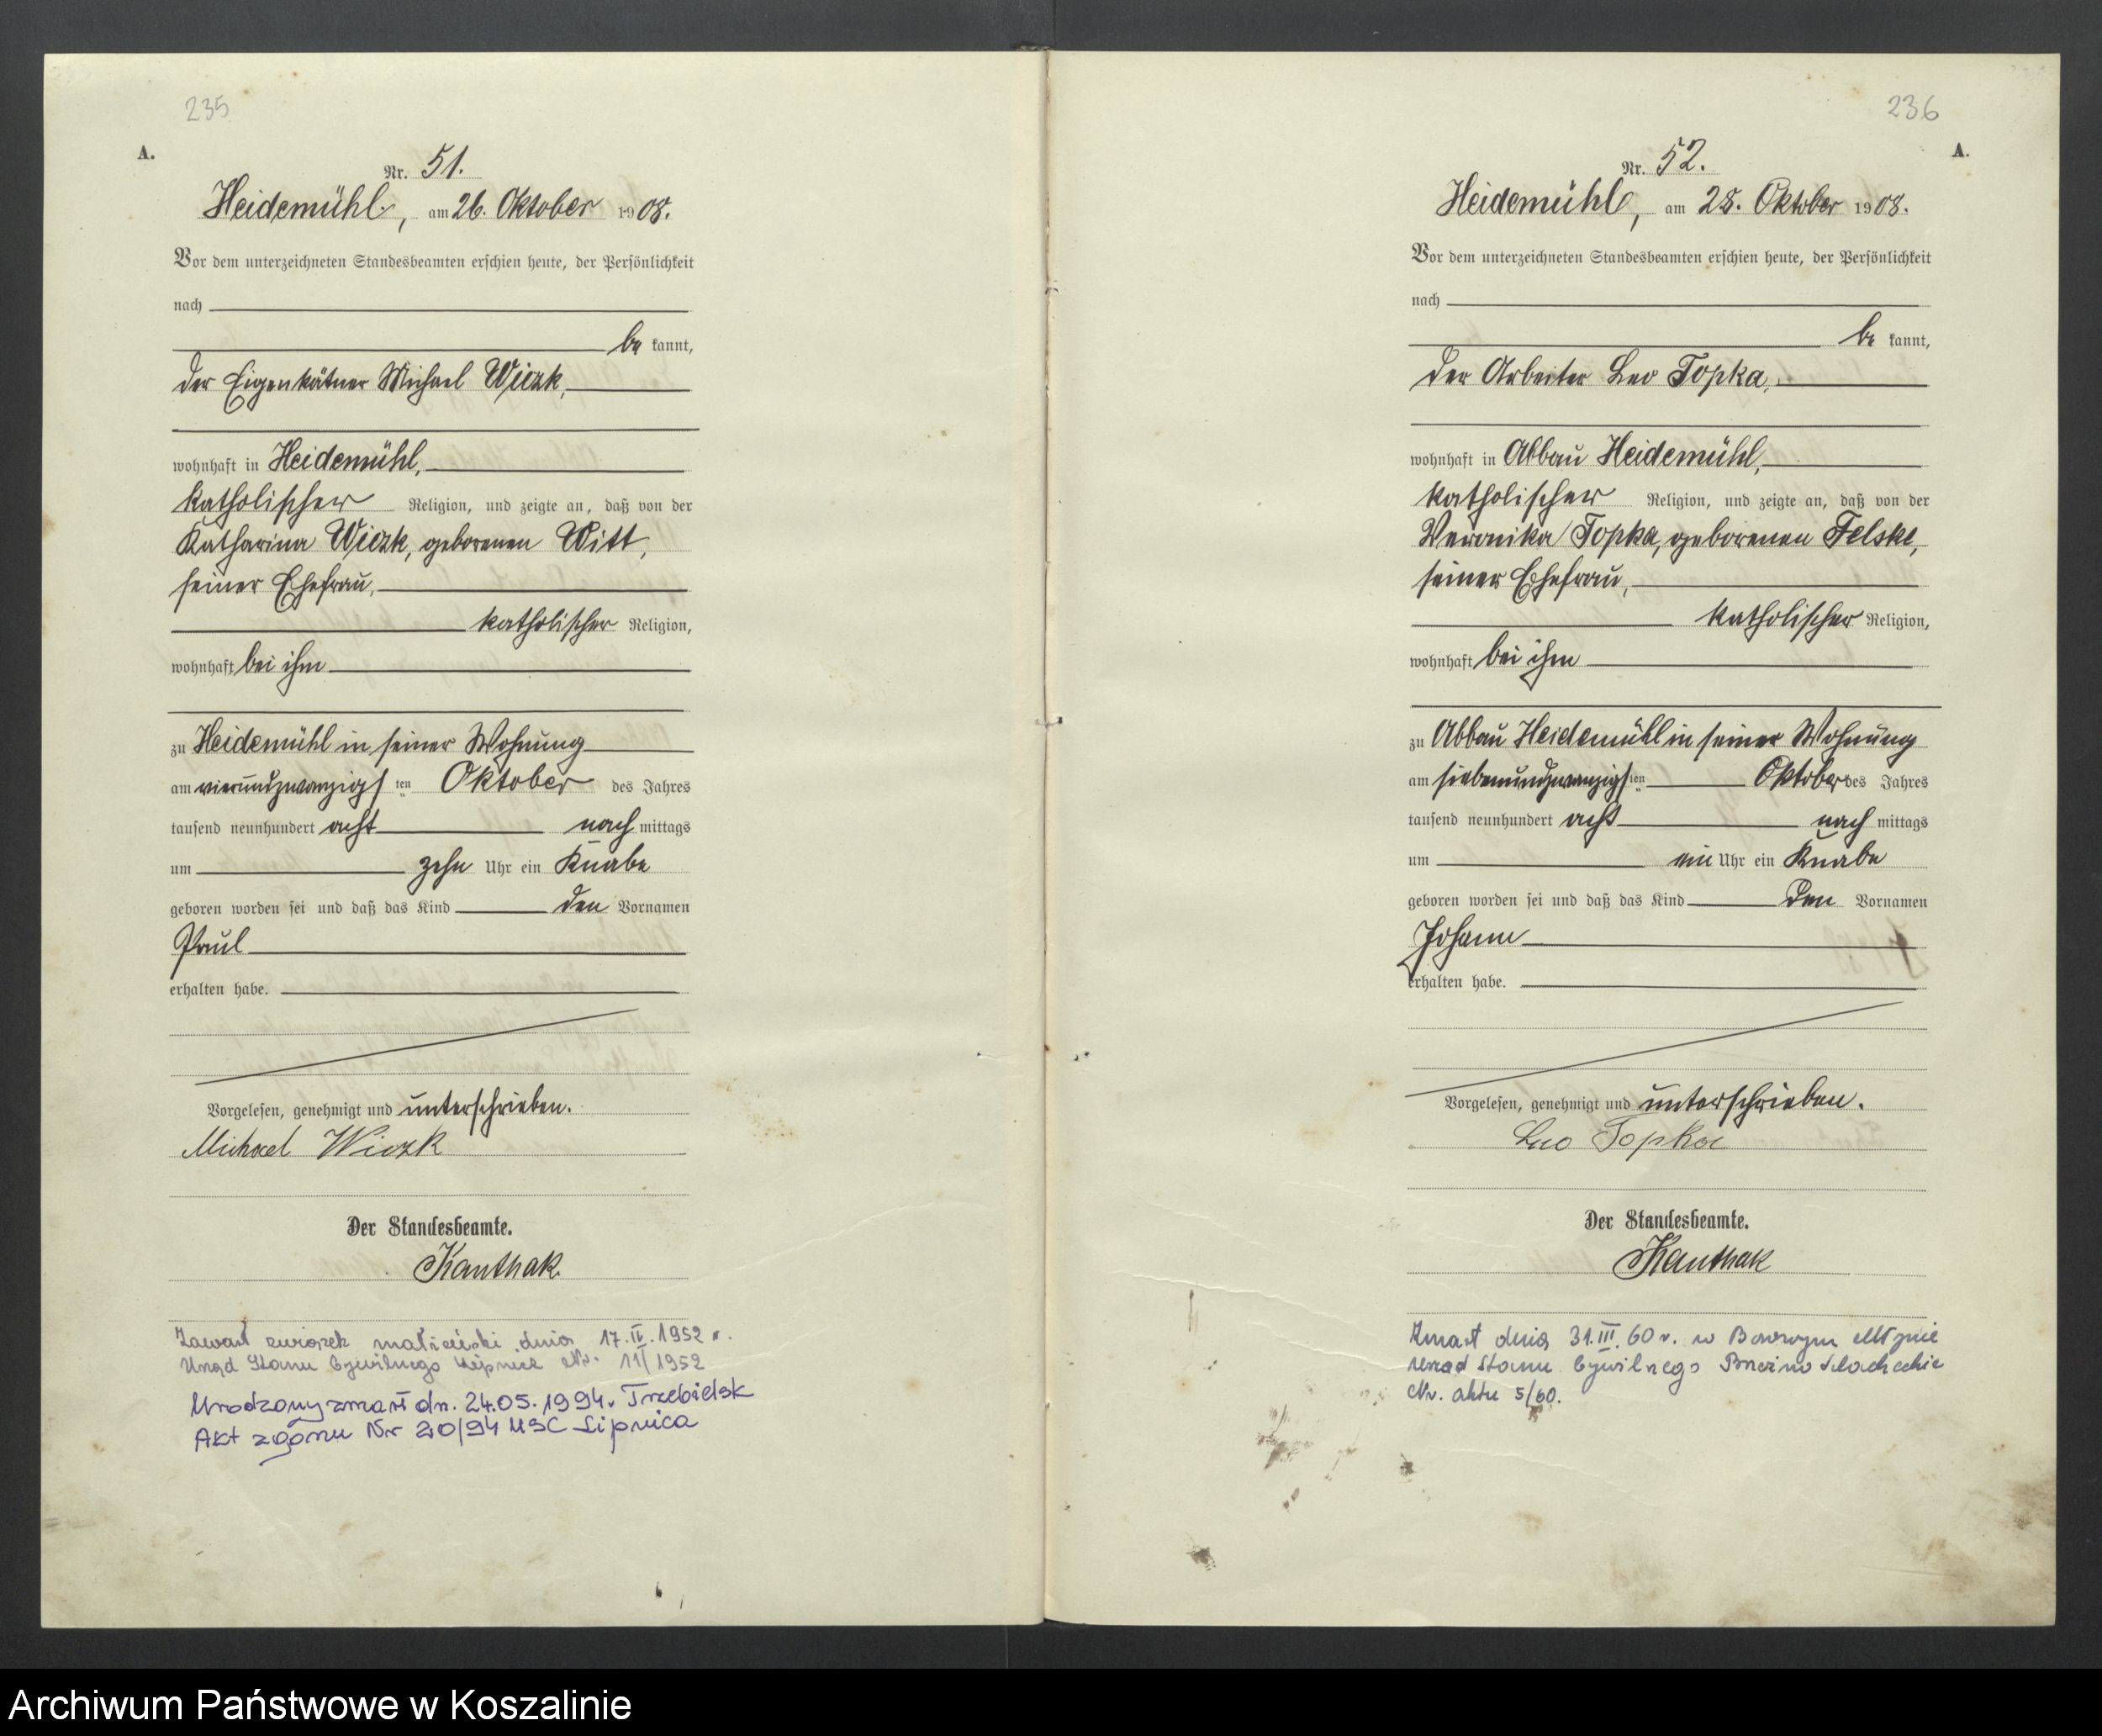 235
A.
Nr. 51.
Heidemühl, am 26. Oktober 1908.
Vor dem unterzeichneten Standesbeamten erschien heute, der Persönlichkeit
nach
be kannt,
der Eigenkätner Michael Wiczk,
wohnhaft in Heidemühl,
katholischer Religion, und zeigte an, daß von der
Katharina Wiczk, geborenen Witt,
seiner Ehefrau,
katholischer Religion,
wohnhaft bei ihm
zu Heidemühl in seiner Wohnung
am vierundzwanzigsten Oktober des Jahres
tausend neunhundert acht nach mittags
um zehn Uhr ein Knabe
geboren worden sei und daß das Kind den Vornamen
Paul
erhalten habe.
Vorgelesen, genehmigt und unterschrieben.
Michael Wiczk
Der Standesbeamte.
Kanthak.
Zawarł związek małżeński dnia 17.IV.1952 r.
Urząd Stanu Cywilnego Lipnica Nr. 11/1952
Urodzony zmarł dn. 24.05.1994r Trzebielsk
Akt zgonu Nr 20/94 USC Lipnica
236
A.
Nr. 52.
Heidemühl, am 28. Oktober 1908.
Vor dem unterzeichneten Standesbeamten erschien heute, der Persönlichkeit
nach
be kannt,
der Arbeiter Leo Topka,
wohnhaft in Abbau Heidemühl,
katholischer Religion, und zeigte an, daß von der
Veronika Topka, geborenen Felske,
seiner Ehefrau,
katholischer Religion,
wohnhaft bei ihm
zu Abbau Heidemühl in seiner Wohnung
am siebenundzwanzigsten Oktober des Jahres
tausend neunhundert acht nach mittags
um ein Uhr ein Knabe
geboren worden sei und daß das Kind den Vornamen
Johann
erhalten habe.
Vorgelesen, genehmigt und unterschrieben.
Leo Topka
Der Standesbeamte.
Kanthak
Zmarł dnia 31.III.60 r. w Borowym Młynie
Urząd Stanu Cywilnego Brzeźno Szlacheckie
Nr. aktu 5/60.
Archiwum Państwowe w Koszalinie